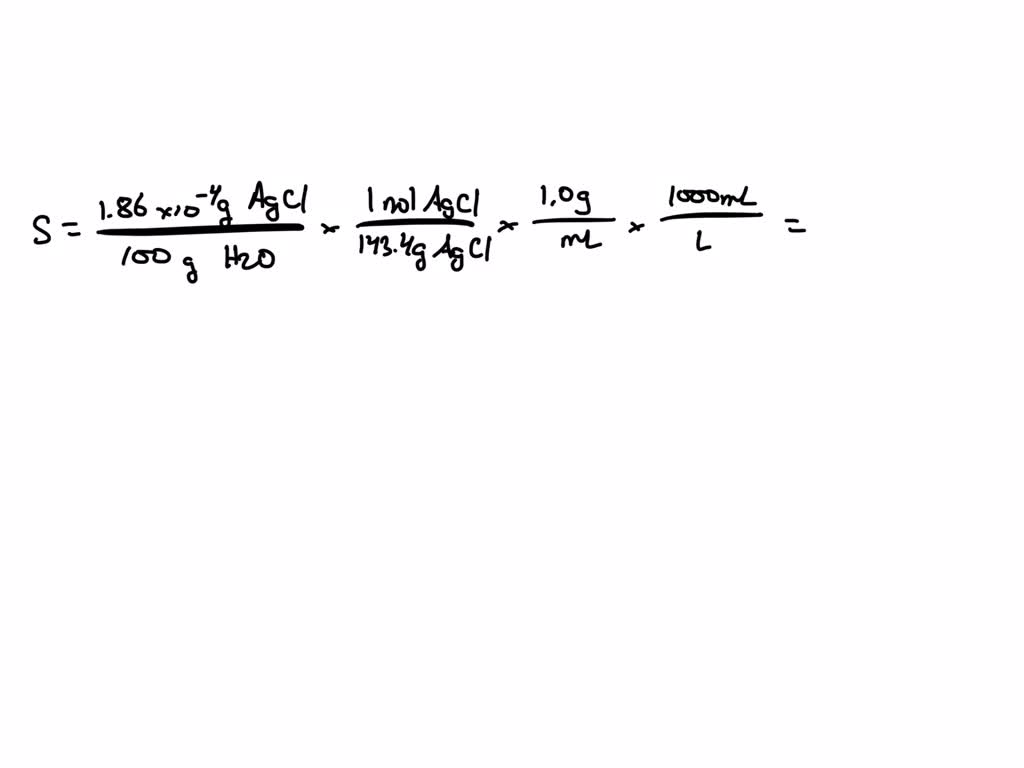 S = 1.86 x10⁻⁴g AgCl / 100 g H₂O x 1 mol AgCl / 143.4g AgCl x 1.0g / mL x 1000mL / L =